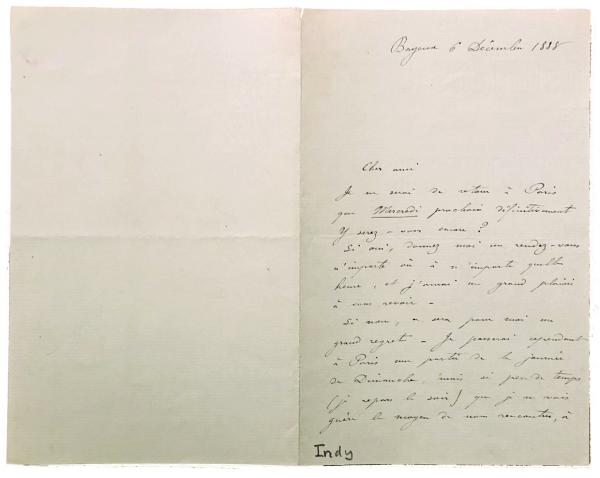 Bayeux 6 Décembre 1888
Cher ami
Je ne serai de retour à Paris
que Mercredi prochain définitivement
Y serez-vous encore ?
Si oui, donnez moi un rendez-vous
n'importe où à n'importe quelle
heure, et j'aurai un grand plaisir
à vous revoir -
Si non, ce sera pour moi un
grand regret - Je passerai cependant
à Paris une partie de la journée
de Dimanche, mais si peu de temps
(je repars le soir) que je ne vois
guère le moyen de nous rencontrer, à
Indy